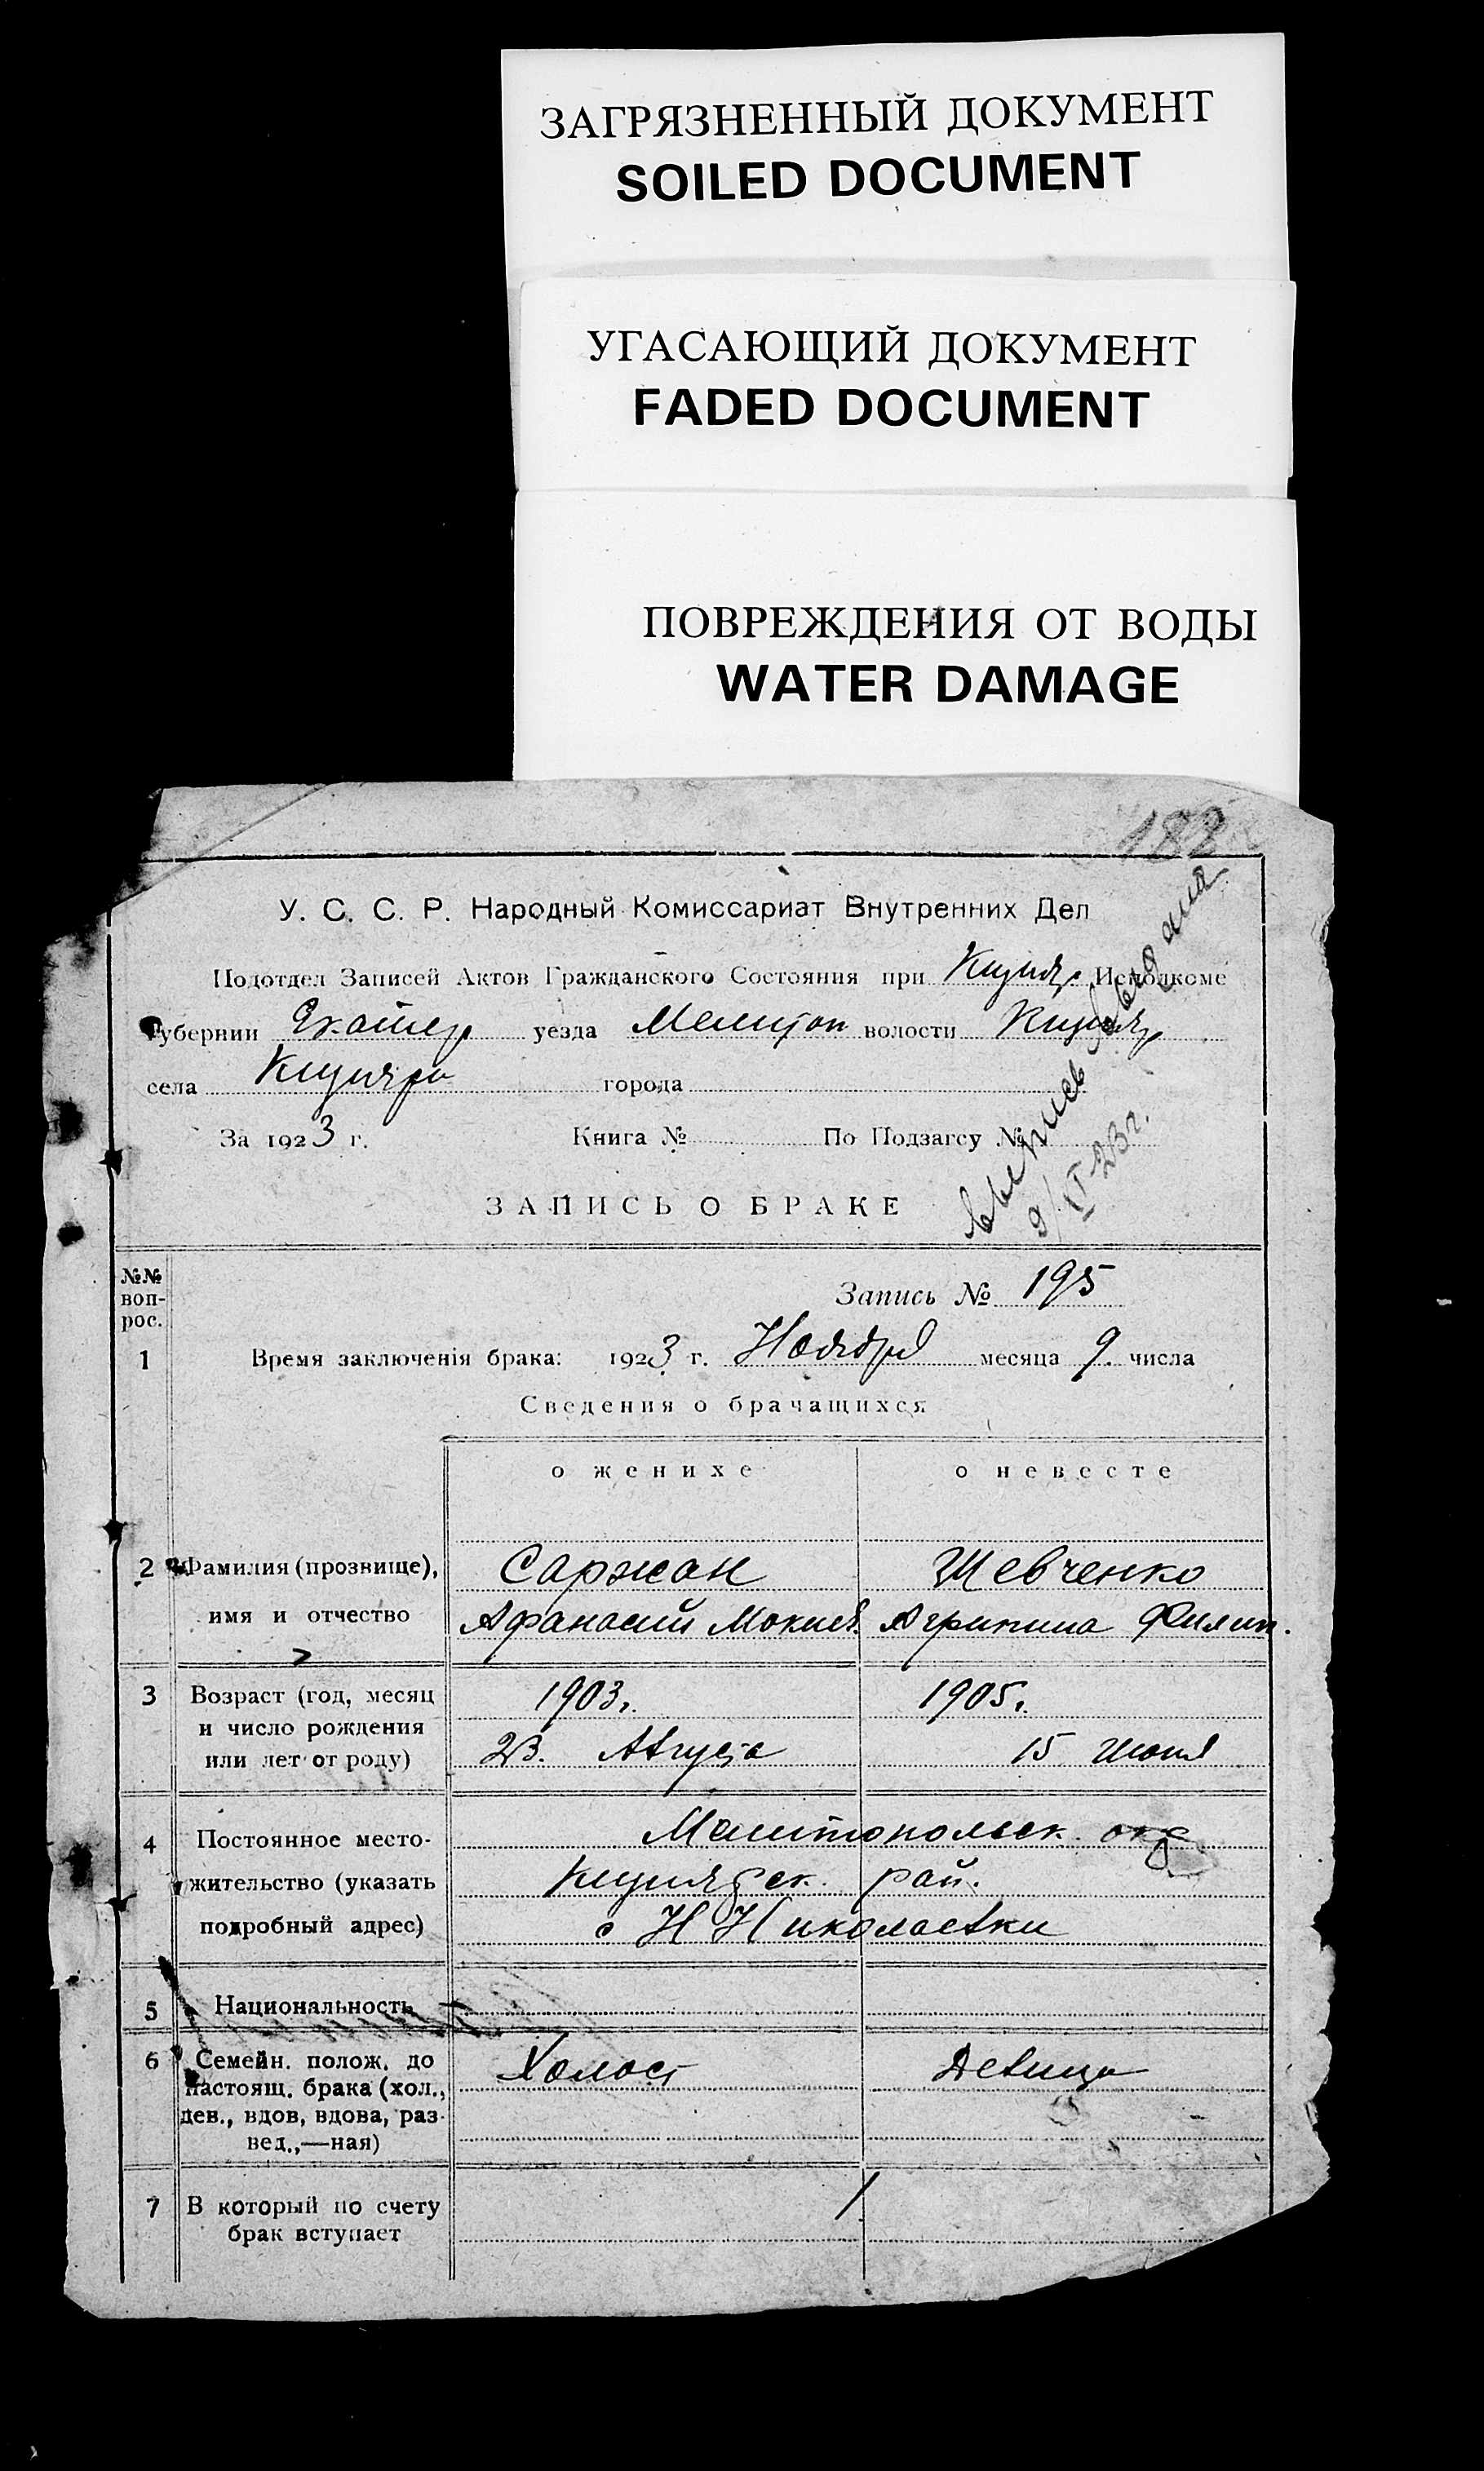 ЗАГРЯЗНЕННЫЙ ДОКУМЕНТ
SOILED DOCUMENT
УГАСАЮЩИЙ ДОКУМЕНТ
FADED DOCUMENT
ПОВРЕЖДЕНИЯ ОТ ВОДЫ
WATER DAMAGE
182
У. С. С. Р. Народный Комиссариат Внутренних Дел
Подотдел Записей Актов Гражданского Состояния при Кизияр. Исполкоме
Губернии Екатер уезда Мелитоп волости Кизияр
села Кизияра города
За 1923 г. Книга № По Подзагсу №
выпись выдана
9/XI-23 г.
ЗАПИСЬ О БРАКЕ
№№ воп-рос.
Запись № 195
1 Время заключенія брака: 1923 г. Ноября месяца 9. числа
Сведения о брачащихся
о женихе о невесте
2 Фамилия (прозвище), Саржан Шевченко
имя и отчество Афанасий Мокиев. Агрипина Филип.
3 Возраст (год, месяц 1903г. 1905г.
и число рождения
или лет от роду) 23. Августа 15 Июня
4 Постоянное место- Мелитопольск. окр
жительство (указать Кизиярск. рай.
подробный адрес) с Н Николаевки
5 Национальность
6 Семейн. полож. до Холост Девица
настоящ. брака (хол.,
дев., вдов, вдова, раз-
вед.,—ная)
7 В который по счету 1
брак вступает